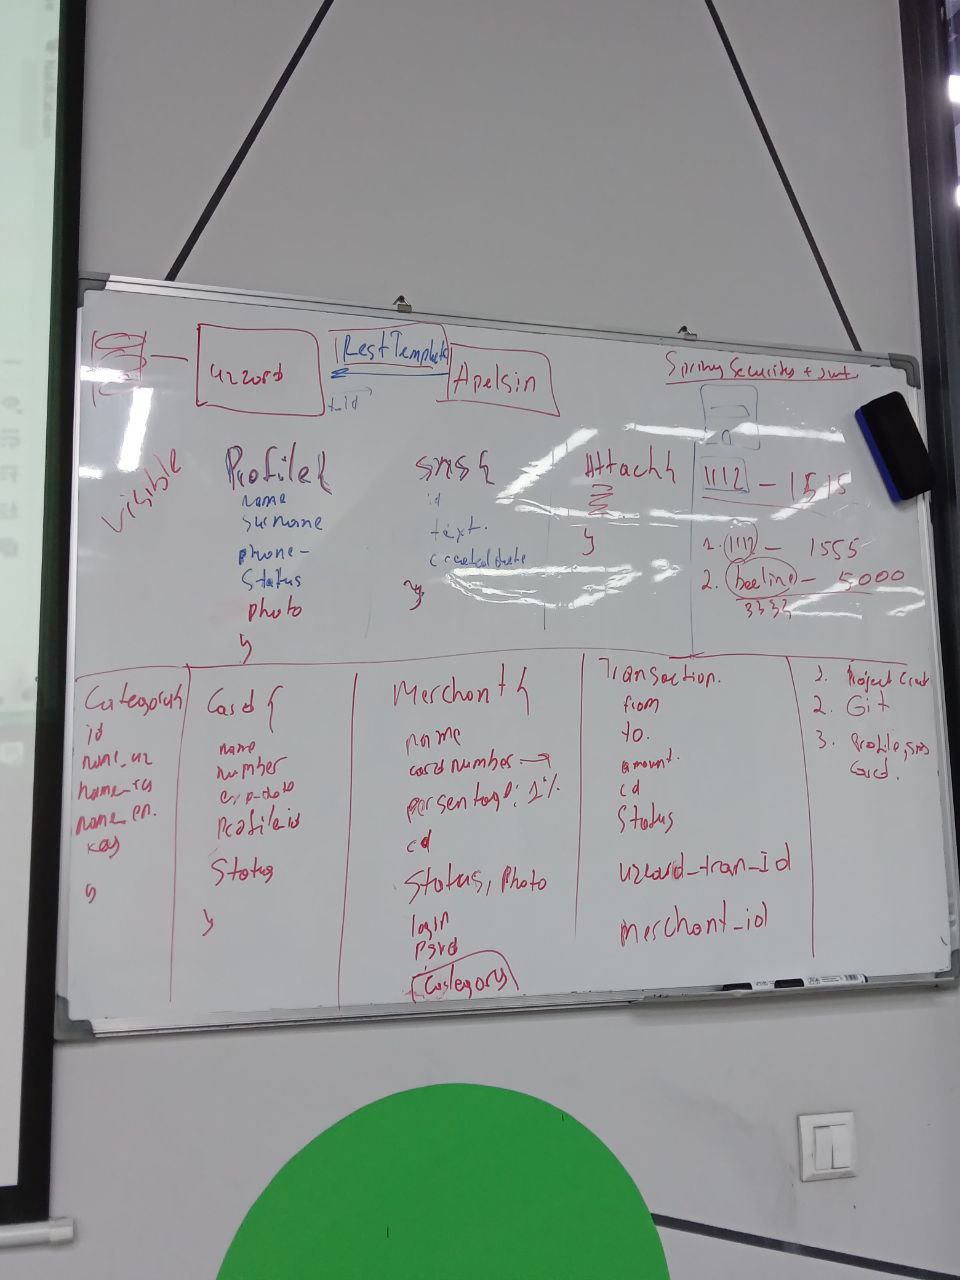 uzcard
RestTemplate
t_id
Apelsin
Spring Security + jwt
visible
Profile{
name
surname
phone-
Status
photo
}
sms{
id
text.
createddate
}
Attach{
}
1112 - 1515
1. 1112 - 1555
2. beeline - 5000
3333
id
name_uz
name_ru
name_en.
key
}
Card {
name
number
exp-date
Profileid
Status
}
Merchant{
name
card number →
persentage: 1%
cd
Status, Photo
login
Category
Transaction.
from
to.
amount.
cd
Status
uzcard_tran_Id
merchant_id
2. Git
3. Profile, sms
Card.